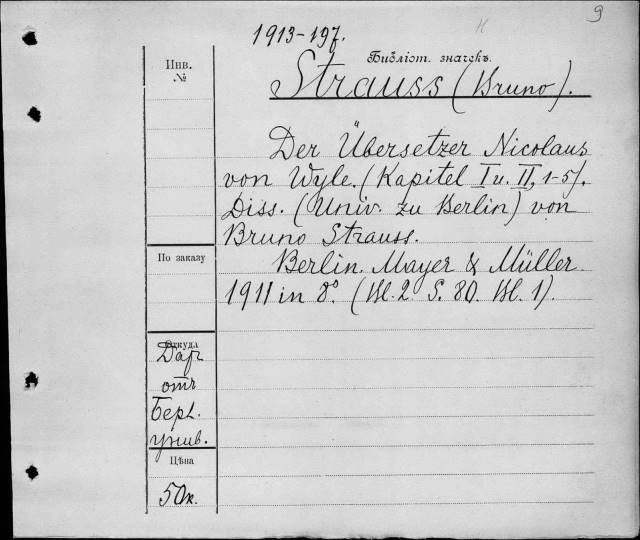 9
1913-197.
Библіот. значекъ.
Инв.
№
Strauss (Bruno).
Der Übersetzer Nicolaus
von Wyle. (Kapitel I u. II, 1-5).
Diss. (Univ. zu Berlin) von
Bruno Strauss.
По заказу
Berlin. Mayer & Müller
1911 in 8°. (Bl. 2. S. 80. Bl. 1).
Откуда
Даръ
отъ
Берл.
унив.
Цѣна
50к.